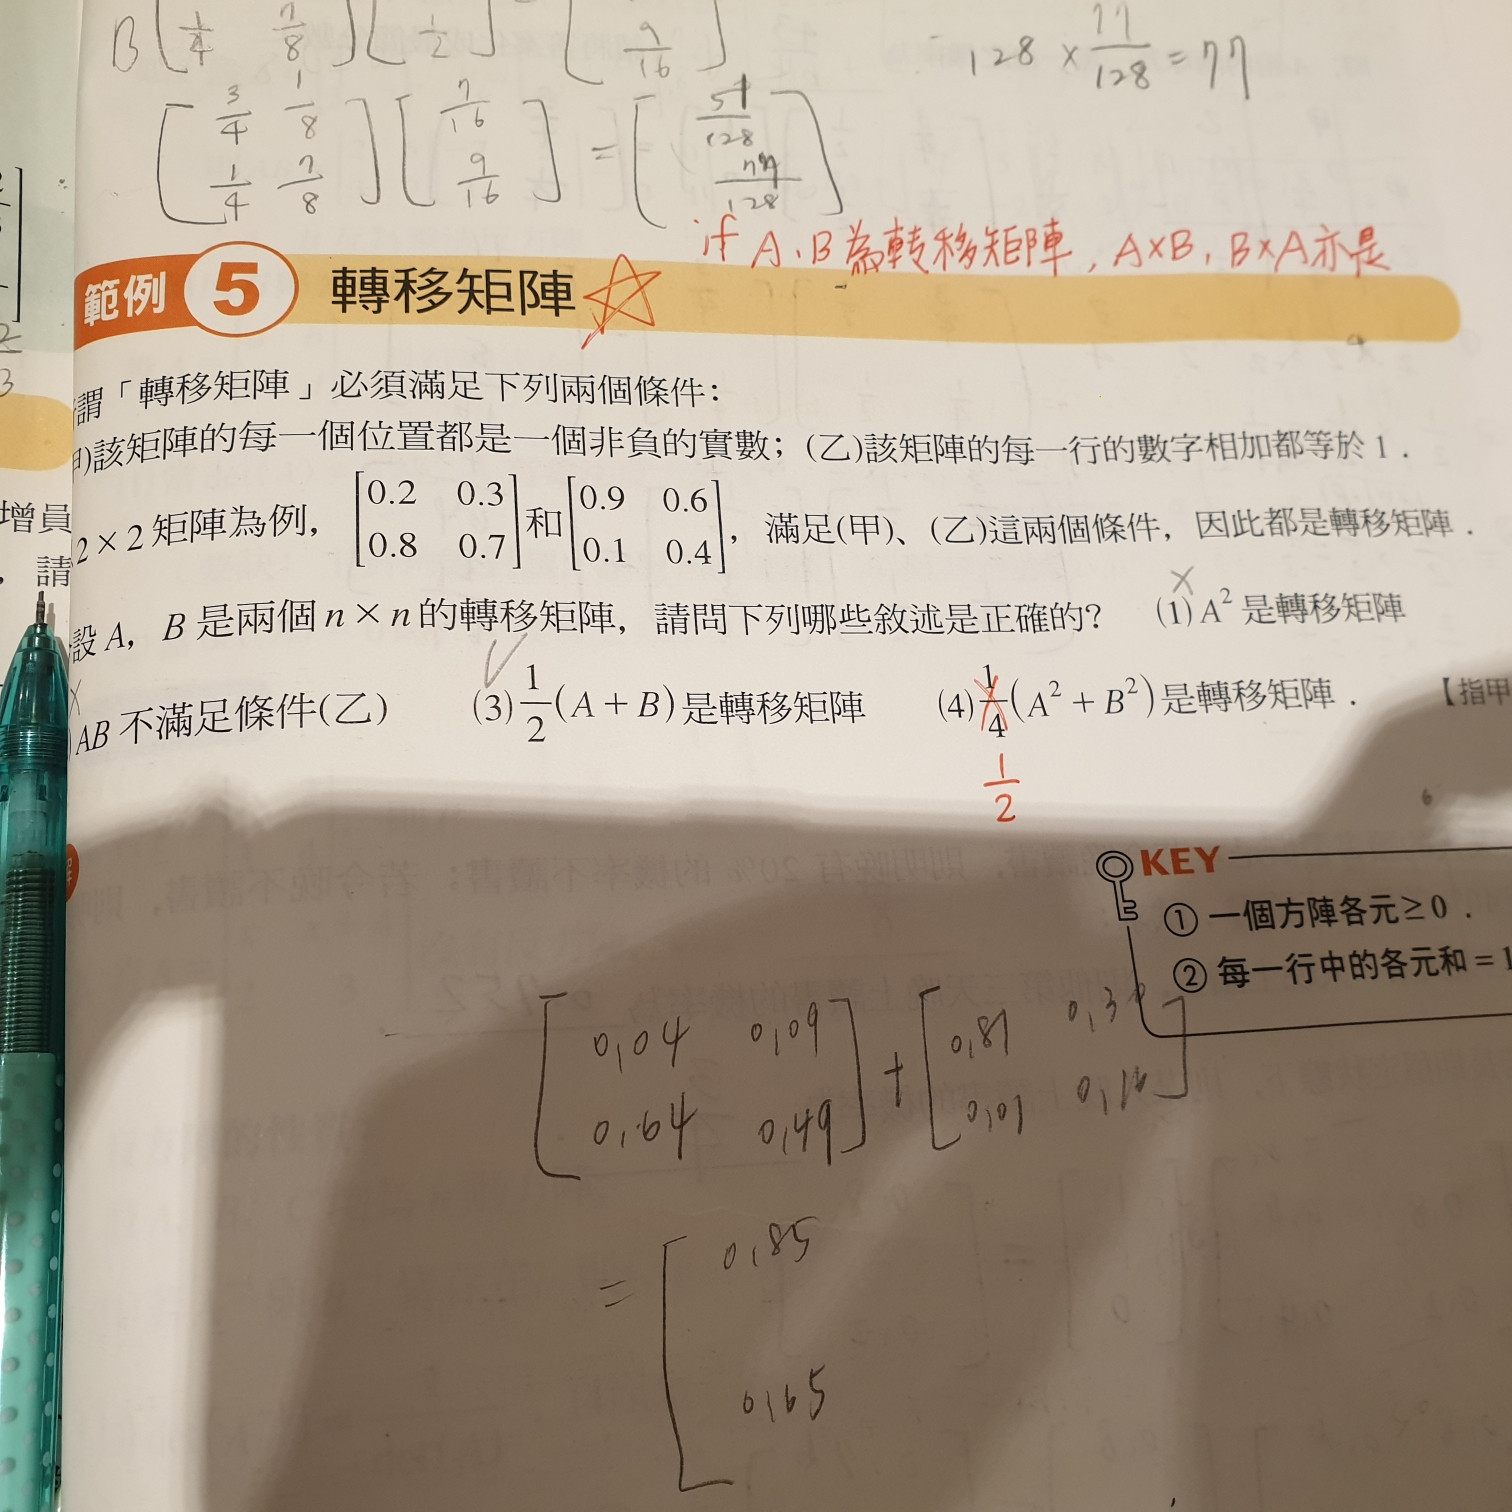 B [ 1/4 7/8 ] [ 1/2 ] = [ 9/16 ]
128 × 77/128 = 77
[ 3/4 1/8 ] [ 7/16 ] = [ 51/128 ]
[ 1/4 7/8 ] [ 9/16 ] [ 77/128 ]
if A、B為轉移矩陣, A×B, B×A亦是
範例 5 轉移矩陣
謂「轉移矩陣」必須滿足下列兩個條件:
)該矩陣的每一個位置都是一個非負的實數;(乙)該矩陣的每一行的數字相加都等於 1 .
2 × 2 矩陣為例, [ 0.2 0.3 ] 和 [ 0.9 0.6 ] , 滿足(甲)、(乙)這兩個條件,因此都是轉移矩陣 .
[ 0.8 0.7 ] [ 0.1 0.4 ]
設 A,B 是兩個 n × n 的轉移矩陣,請問下列哪些敘述是正確的? (1) A² 是轉移矩陣
AB 不滿足條件(乙) (3) 1/2 (A + B) 是轉移矩陣 (4) 1/4 (A² + B²) 是轉移矩陣 . 【指甲
1/2
增員
, 請
KEY
① 一個方陣各元 ≥ 0 .
② 每一行中的各元和 = 1
[ 0.04 0.09 ] + [ 0.81 0.3 ]
[ 0.64 0.49 ] [ 0.01 0.16 ]
= [ 0.85
0.65